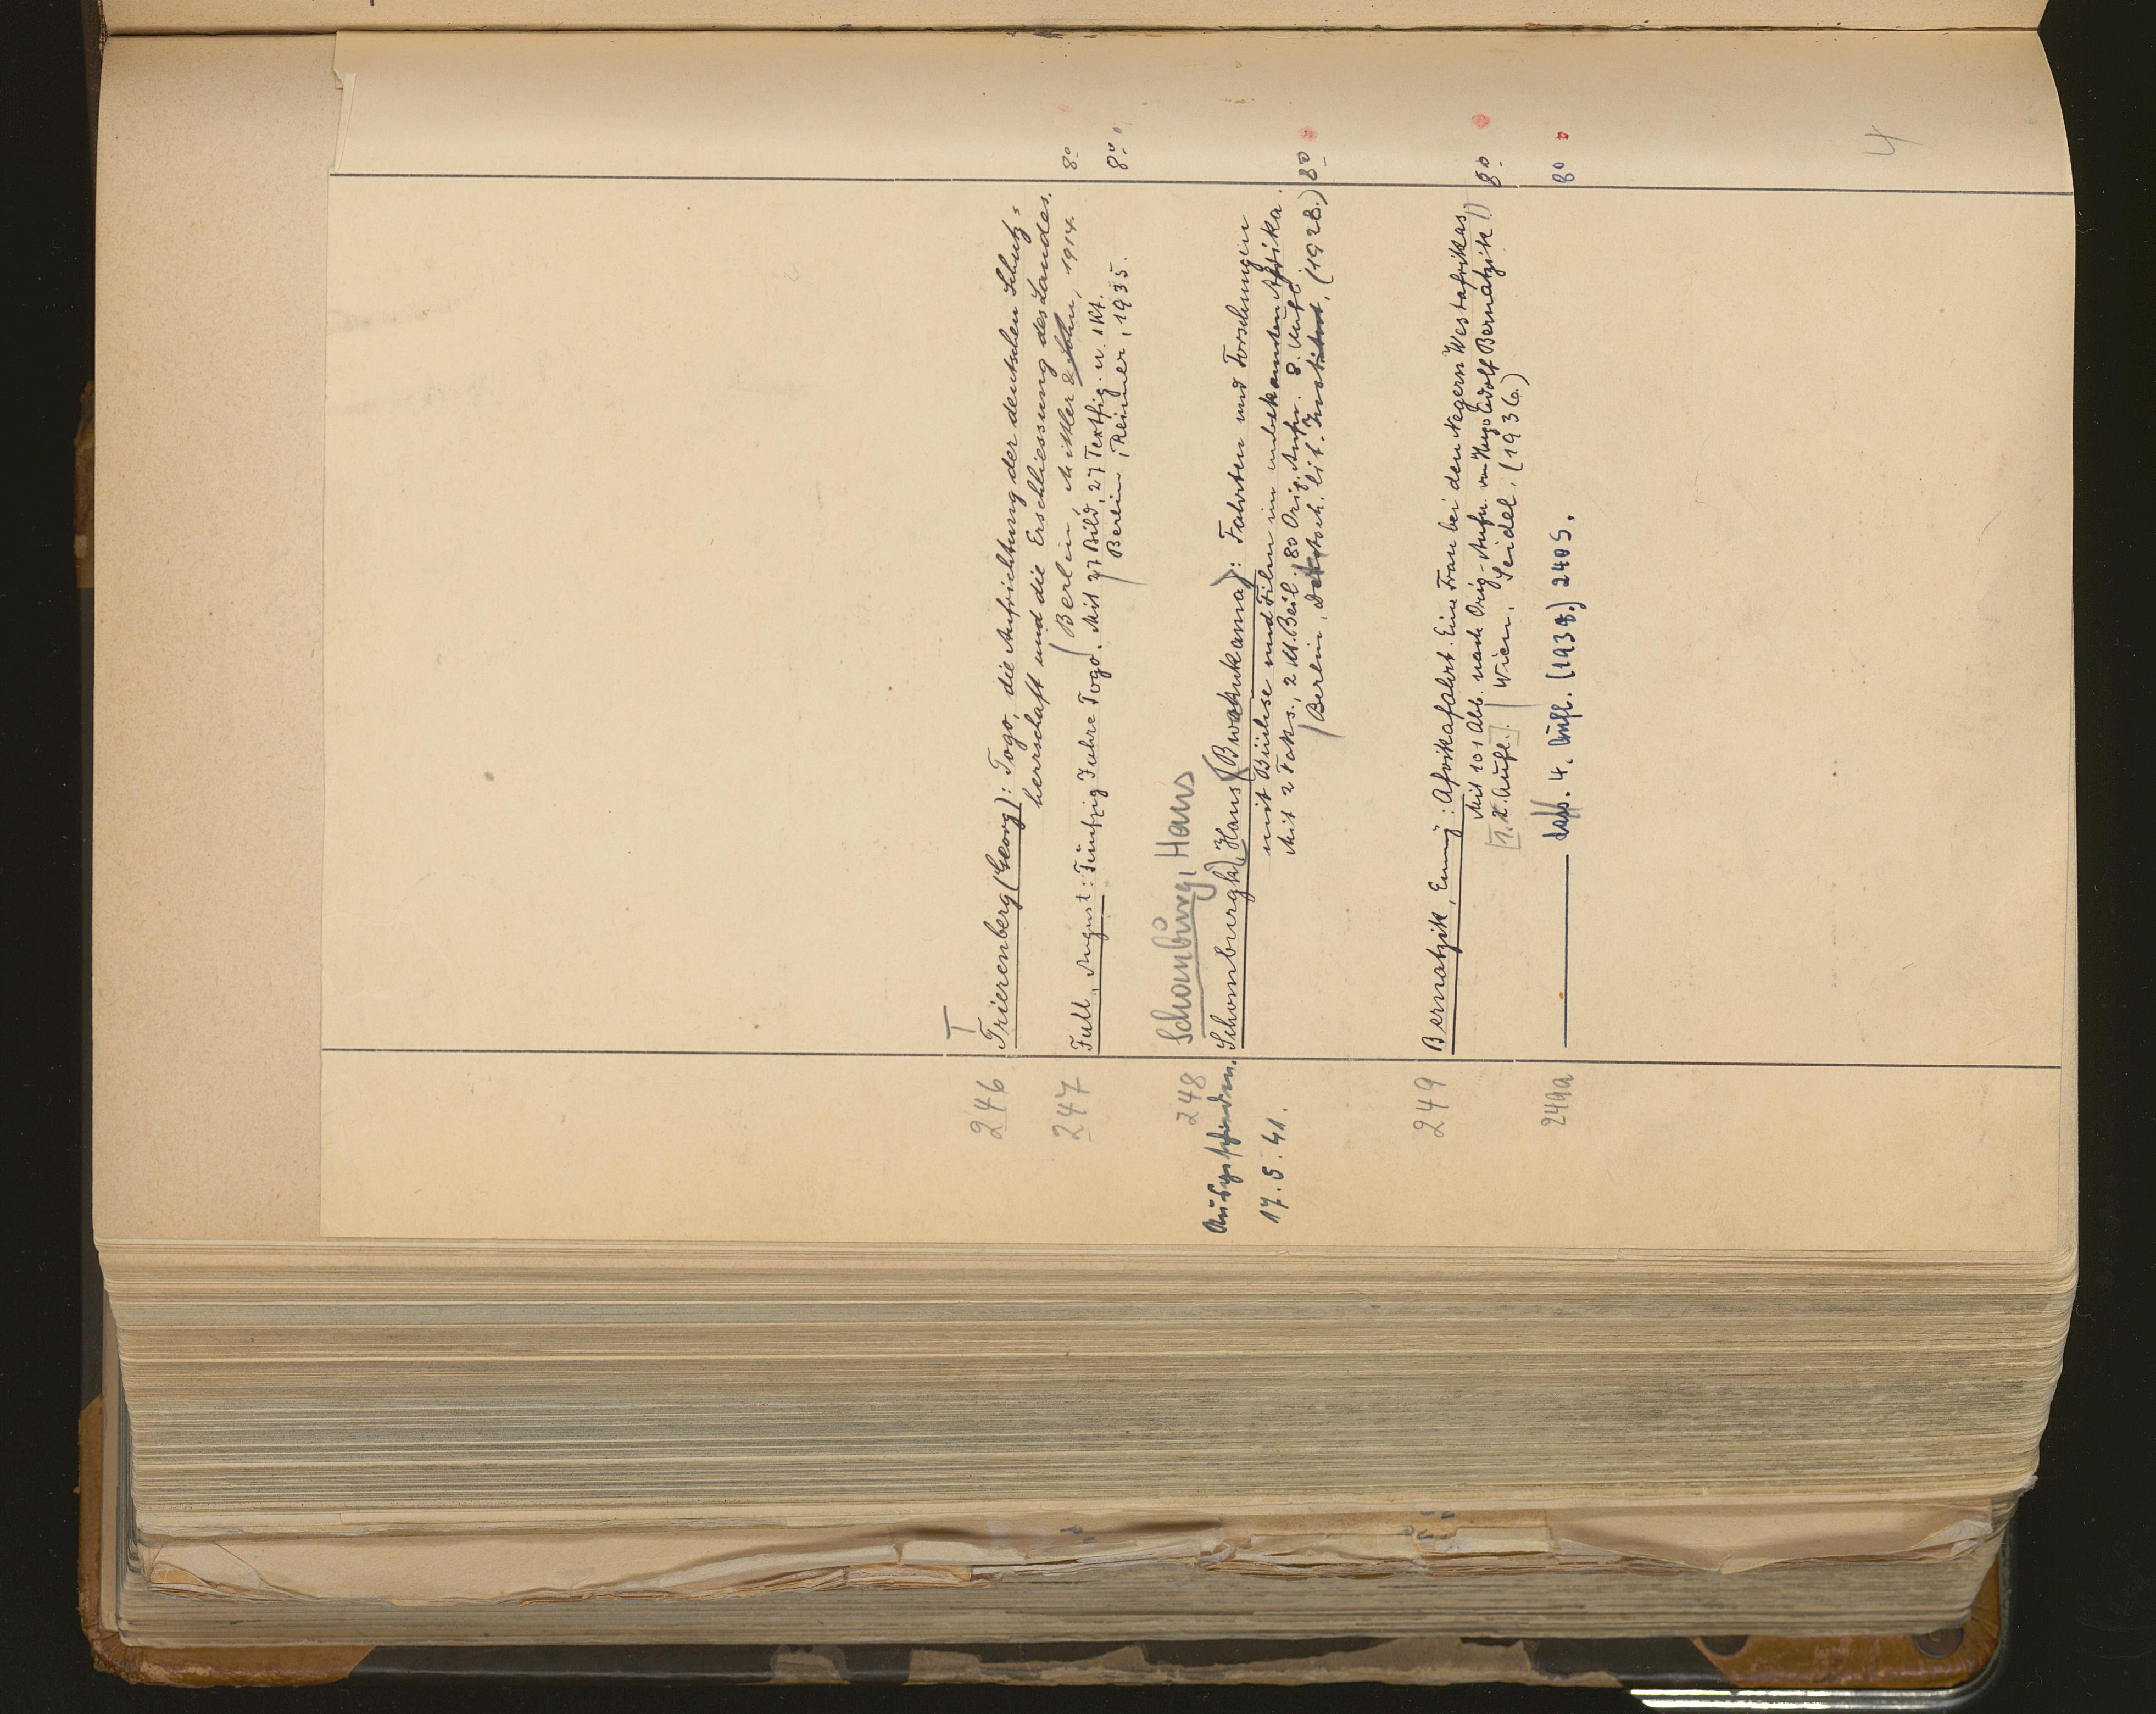 4
T
246 Trierenberg (Georg): Togo, die Aufrichtung der deutschen Schutz=
herrschaft und die Erschliessung des Landes.
/Berlin, Mittler & Sohn, 1914. 8º
247 Full, August: Fünfzig Jahre Togo. Mit 27 Bild., 27 Textfig. u. 1 Kt.
/Berlin, Reimer, 1935. 8º
Schomburg, Hans
248 Schomburgk, Hans (Bwakukama): Fahrten und Forschungen
mit Büchse und Film im unbekannten Afrika.
Mit 2 Faks., 2 Kt. Beil., 80 Orig. Aufn. 8. Aufl.
/Berlin, Dektsch. lit. Institut, (1928.) 8º
Ausgeschieden.
17. 5. 41.
249 Bernatzik, Emmy: Afrikafahrt. Eine Frau bei den Negern Westafrikas
Mit 101 Abb. nach Orig.-Aufn. von Hugo Adolf Bernatzik.)
[1. x. Aufl.] / Wien, Seidel, (1936.) 8º
249a ——— dass. 4. Aufl. (1938.) 240 S. 8º